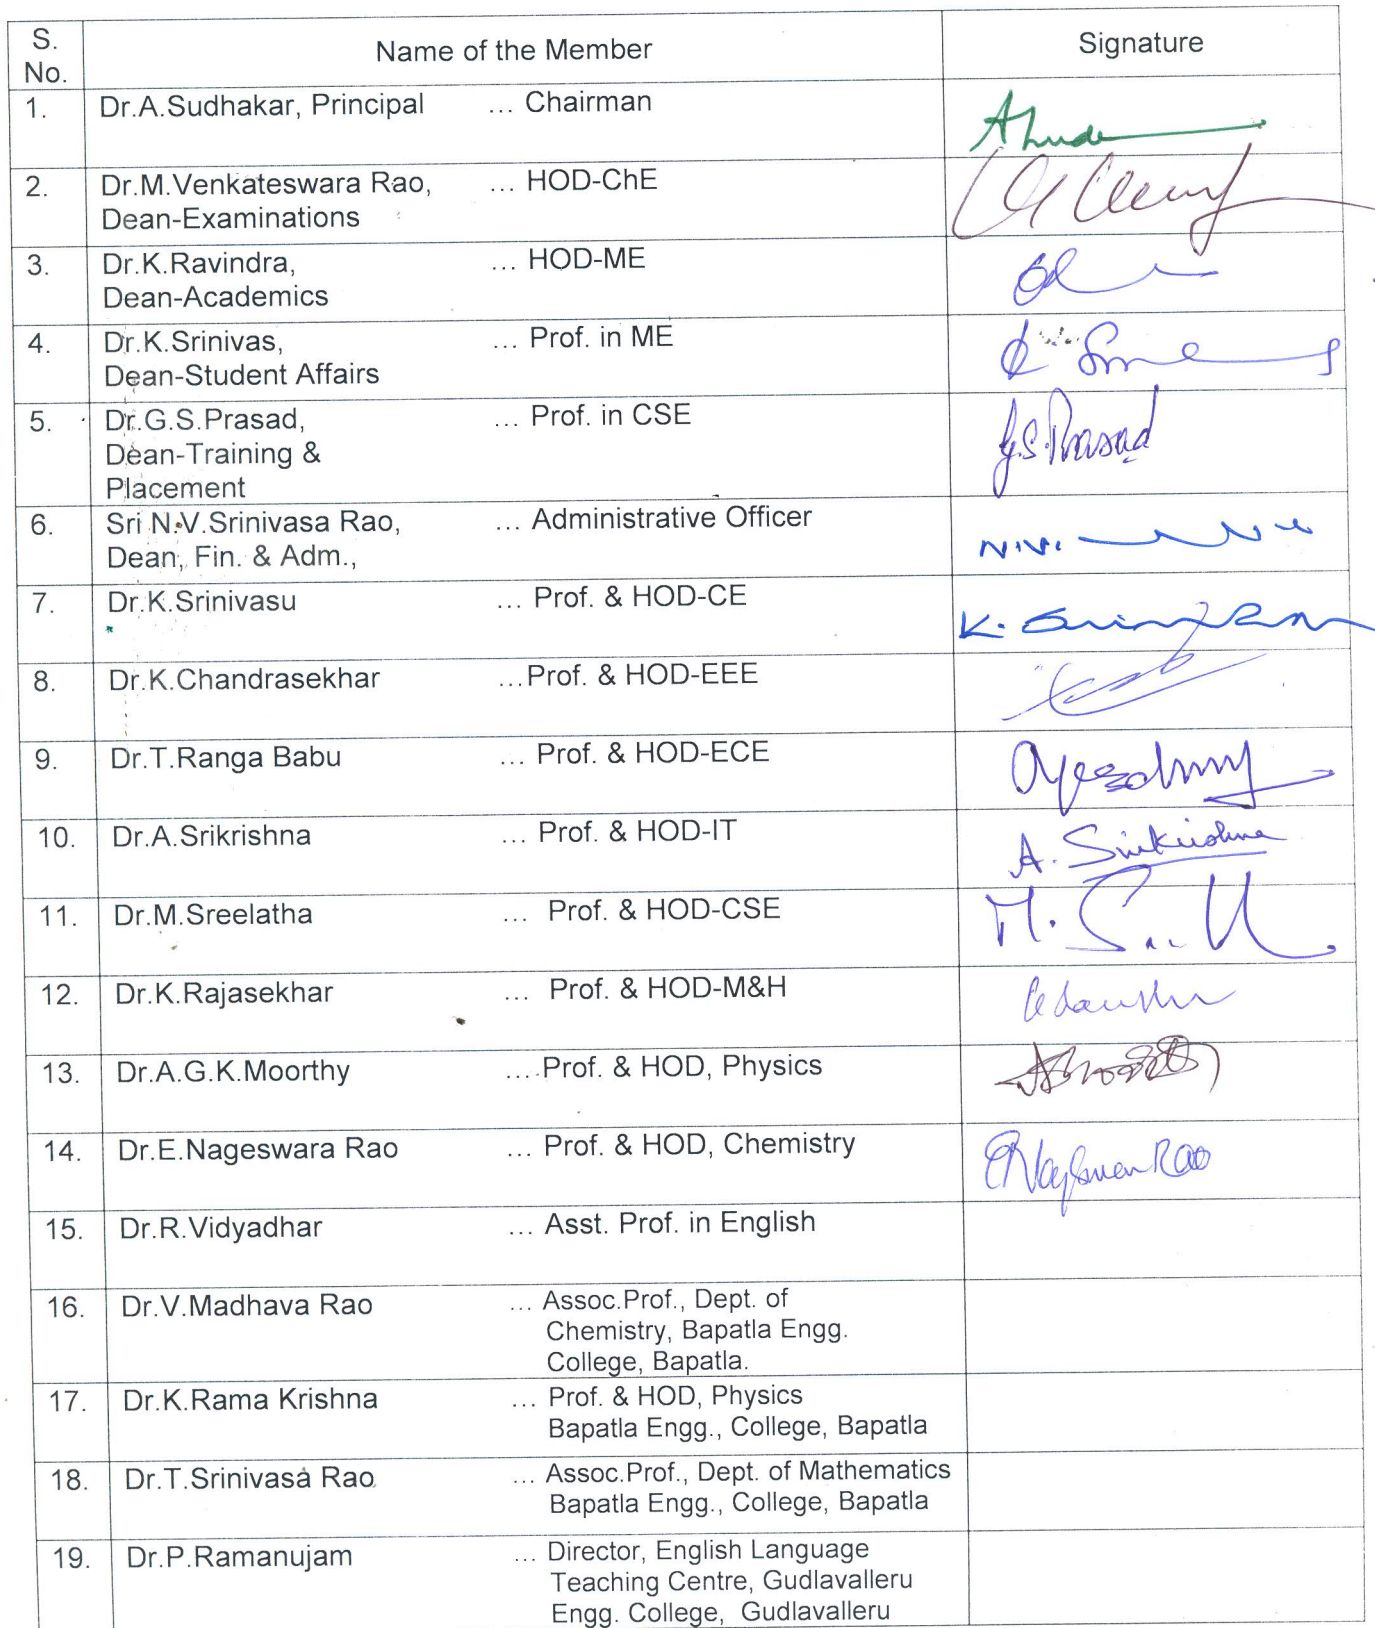 S. No. Name of the Member Signature
1. Dr.A.Sudhakar, Principal ... Chairman
2. Dr.M.Venkateswara Rao, ... HOD-ChE
Dean-Examinations
3. Dr.K.Ravindra, ... HOD-ME
Dean-Academics
4. Dr.K.Srinivas, ... Prof. in ME
Dean-Student Affairs
5. Dr.G.S.Prasad, ... Prof. in CSE G.S.Prasad
Dean-Training &
Placement
6. Sri N.V.Srinivasa Rao, ... Administrative Officer N.V.
Dean, Fin. & Adm.,
7. Dr.K.Srinivasu ... Prof. & HOD-CE
8. Dr.K.Chandrasekhar ...Prof. & HOD-EEE
9. Dr.T.Ranga Babu ... Prof. & HOD-ECE
10. Dr.A.Srikrishna ... Prof. & HOD-IT A. Srikrishna
11. Dr.M.Sreelatha ... Prof. & HOD-CSE
12. Dr.K.Rajasekhar ... Prof. & HOD-M&H
13. Dr.A.G.K.Moorthy ....Prof. & HOD, Physics
14. Dr.E.Nageswara Rao ... Prof. & HOD, Chemistry
15. Dr.R.Vidyadhar ... Asst. Prof. in English
16. Dr.V.Madhava Rao ... Assoc.Prof., Dept. of
Chemistry, Bapatla Engg.
College, Bapatla.
17. Dr.K.Rama Krishna ... Prof. & HOD, Physics
Bapatla Engg., College, Bapatla
18. Dr.T.Srinivasa Rao ... Assoc.Prof., Dept. of Mathematics
Bapatla Engg., College, Bapatla
19. Dr.P.Ramanujam ... Director, English Language
Teaching Centre, Gudlavalleru
Engg. College, Gudlavalleru